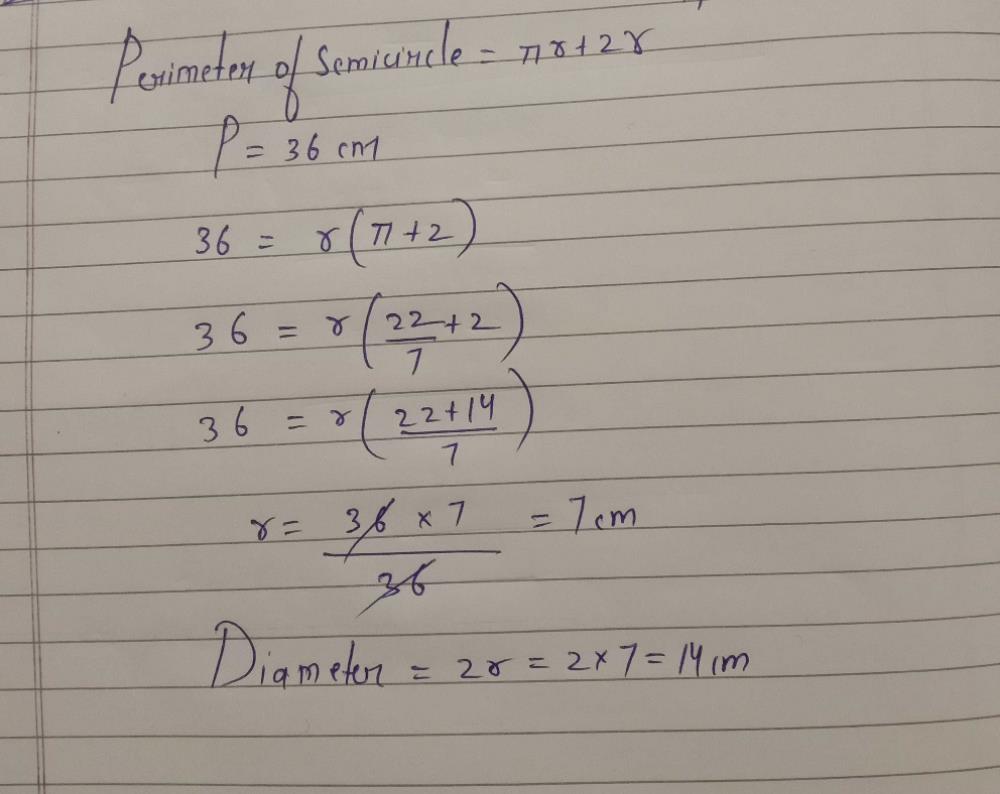 Perimeter of Semicircle = πr+2r
P = 36 cm
36 = r(π+2)
36 = r(22/7+2)
36 = r((22+14)/7)
r = (36 × 7)/36 = 7cm
Diameter = 2r = 2×7 = 14cm